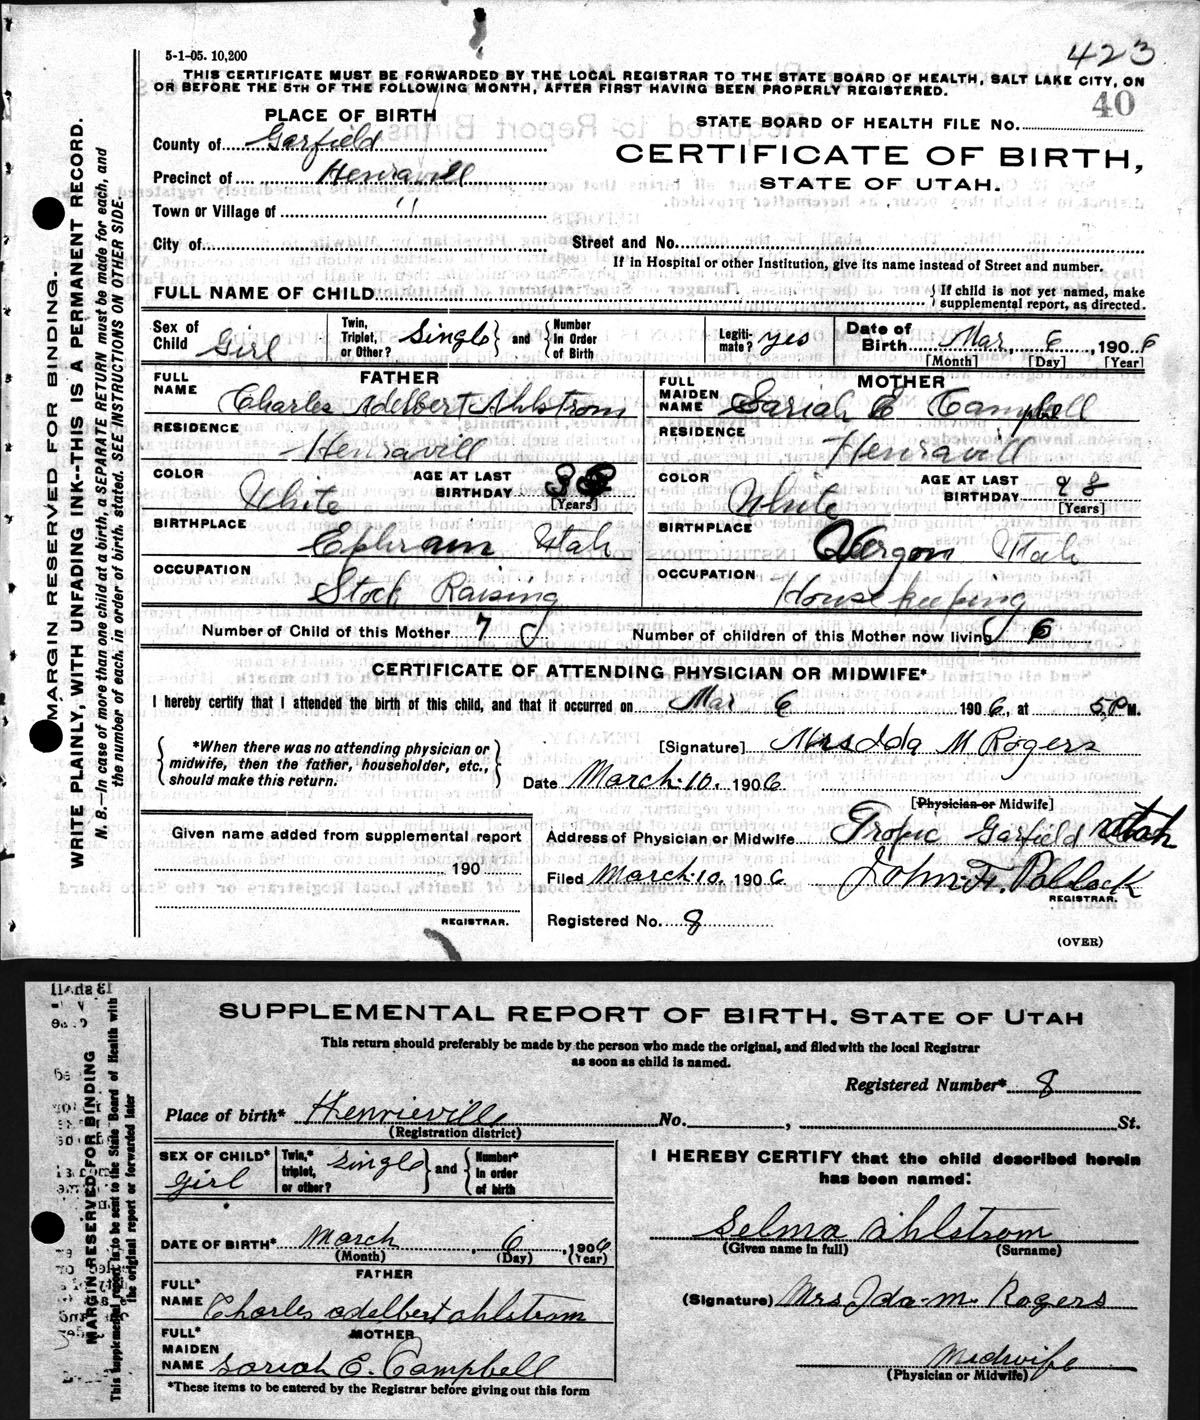 5-1-05. 10,200
423
THIS CERTIFICATE MUST BE FORWARDED BY THE LOCAL REGISTRAR TO THE STATE BOARD OF HEALTH, SALT LAKE CITY, ON
OR BEFORE THE 5TH OF THE FOLLOWING MONTH, AFTER FIRST HAVING BEEN PROPERLY REGISTERED.
40
PLACE OF BIRTH
STATE BOARD OF HEALTH FILE No.
County of Garfield
CERTIFICATE OF BIRTH,
Precinct of Henravill
STATE OF UTAH.
Town or Village of "
City of Street and No.
If in Hospital or other Institution, give its name instead of Street and number.
FULL NAME OF CHILD { If child is not yet named, make supplemental report, as directed.
Sex of Child Girl
Twin, Triplet, or Other? Single } and { Number In Order of Birth
Legiti-mate? yes
Date of Birth Mar, 6, 1906
[Month] [Day] [Year]
FATHER
FULL NAME Charles Adelbert Ahlstrom
RESIDENCE Henravill
COLOR White
AGE AT LAST BIRTHDAY
[Years]
BIRTHPLACE Ephraim Utah
OCCUPATION Stock Raising
MOTHER
FULL MAIDEN NAME Sariah E Campbell
RESIDENCE Henravill
COLOR White
AGE AT LAST BIRTHDAY 28
[Years]
BIRTHPLACE Utah
OCCUPATION House keeping
Number of Child of this Mother 7
Number of children of this Mother now living 6
CERTIFICATE OF ATTENDING PHYSICIAN OR MIDWIFE*
I hereby certify that I attended the birth of this child, and that it occurred on Mar 6 1906, at 5 P M.
{ *When there was no attending physician or midwife, then the father, householder, etc., should make this return. }
[Signature] Mrs Ida M Rogers
Date March. 10. 1906.
[Physician or Midwife]
Given name added from supplemental report
190
REGISTRAR.
Address of Physician or Midwife Tropic Garfield Utah
Filed March. 10. 1906 John. F. Pollock
REGISTRAR.
Registered No. 8
(OVER)
MARGIN RESERVED FOR BINDING.
WRITE PLAINLY, WITH UNFADING INK--THIS IS A PERMANENT RECORD.
N. B.—In case of more than one child at a birth, a SEPARATE RETURN must be made for each, and
the number of each, in order of birth, stated. SEE INSTRUCTIONS ON OTHER SIDE.
SUPPLEMENTAL REPORT OF BIRTH, STATE OF UTAH
This return should preferably be made by the person who made the original, and filed with the local Registrar
as soon as child is named.
Registered Number* 8
Place of birth* Henrievill No. , St.
(Registration district)
SEX OF CHILD* Girl
Twin,* triplet, or other? Single } and { Number* in order of birth
DATE OF BIRTH* March 6, 1906
(Month) (Day) (Year)
FATHER
FULL* NAME Charles adelbert ahlstrom
MOTHER
FULL* MAIDEN NAME Sariah E. Campbell
*These items to be entered by the Registrar before giving out this form
I HEREBY CERTIFY that the child described herein
has been named:
Selma ahlstrom
(Given name in full) (Surname)
(Signature) Mrs Ida. m. Rogers
Midwife
(Physician or Midwife)
MARGIN RESERVED FOR BINDING
This supplemental report is to be sent to the State Board of Health with
the original report or forwarded later